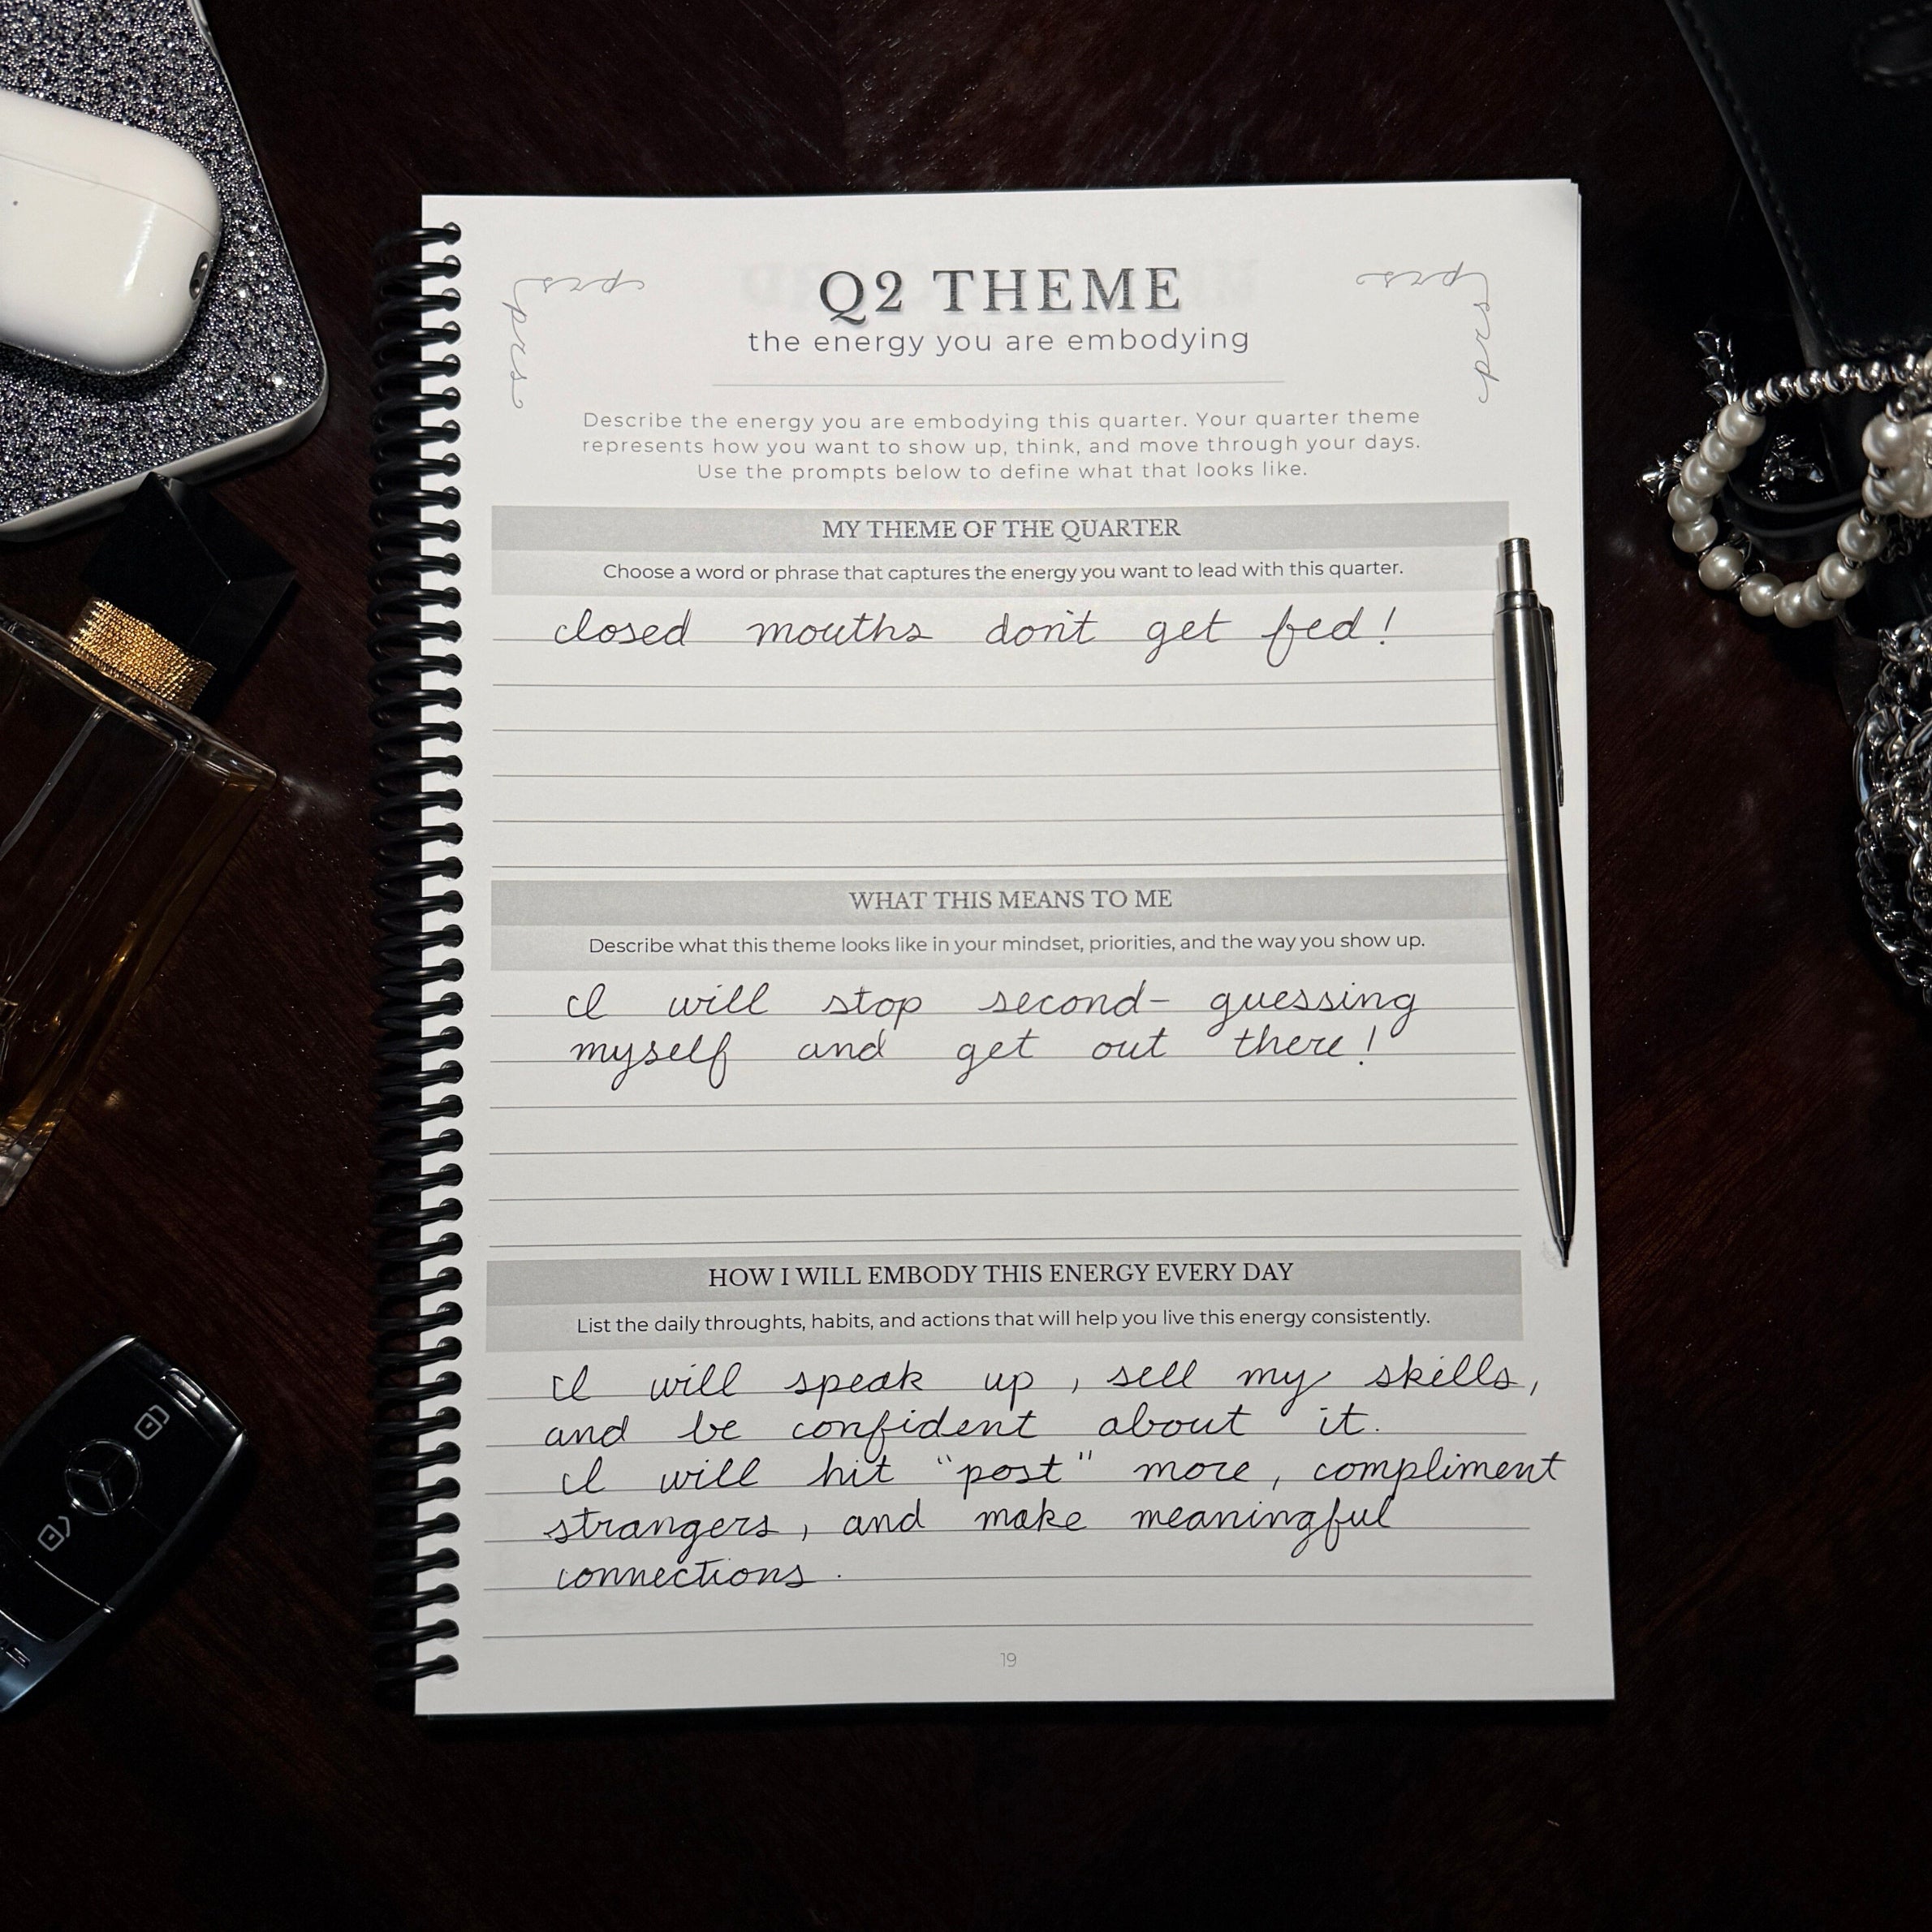 prs prs
Q2 THEME
prs prs
the energy you are embodying
Describe the energy you are embodying this quarter. Your quarter theme
represents how you want to show up, think, and move through your days.
Use the prompts below to define what that looks like.
MY THEME OF THE QUARTER
Choose a word or phrase that captures the energy you want to lead with this quarter.
closed mouths don't get fed!
WHAT THIS MEANS TO ME
Describe what this theme looks like in your mindset, priorities, and the way you show up.
I will stop second-guessing
myself and get out there!
HOW I WILL EMBODY THIS ENERGY EVERY DAY
List the daily throughts, habits, and actions that will help you live this energy consistently.
I will speak up, sell my skills,
and be confident about it.
I will hit "post" more, compliment
strangers, and make meaningful
connections.
19